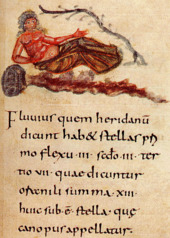 Fluuius quem heridanū
dicunt hab& stellas pri
mo flexu · III · scđo · III · ter
tio VII · quae dicuntur
oſ& nili summa · XIII ·
huic sub ē · stella · quę
canopus appellatur ·